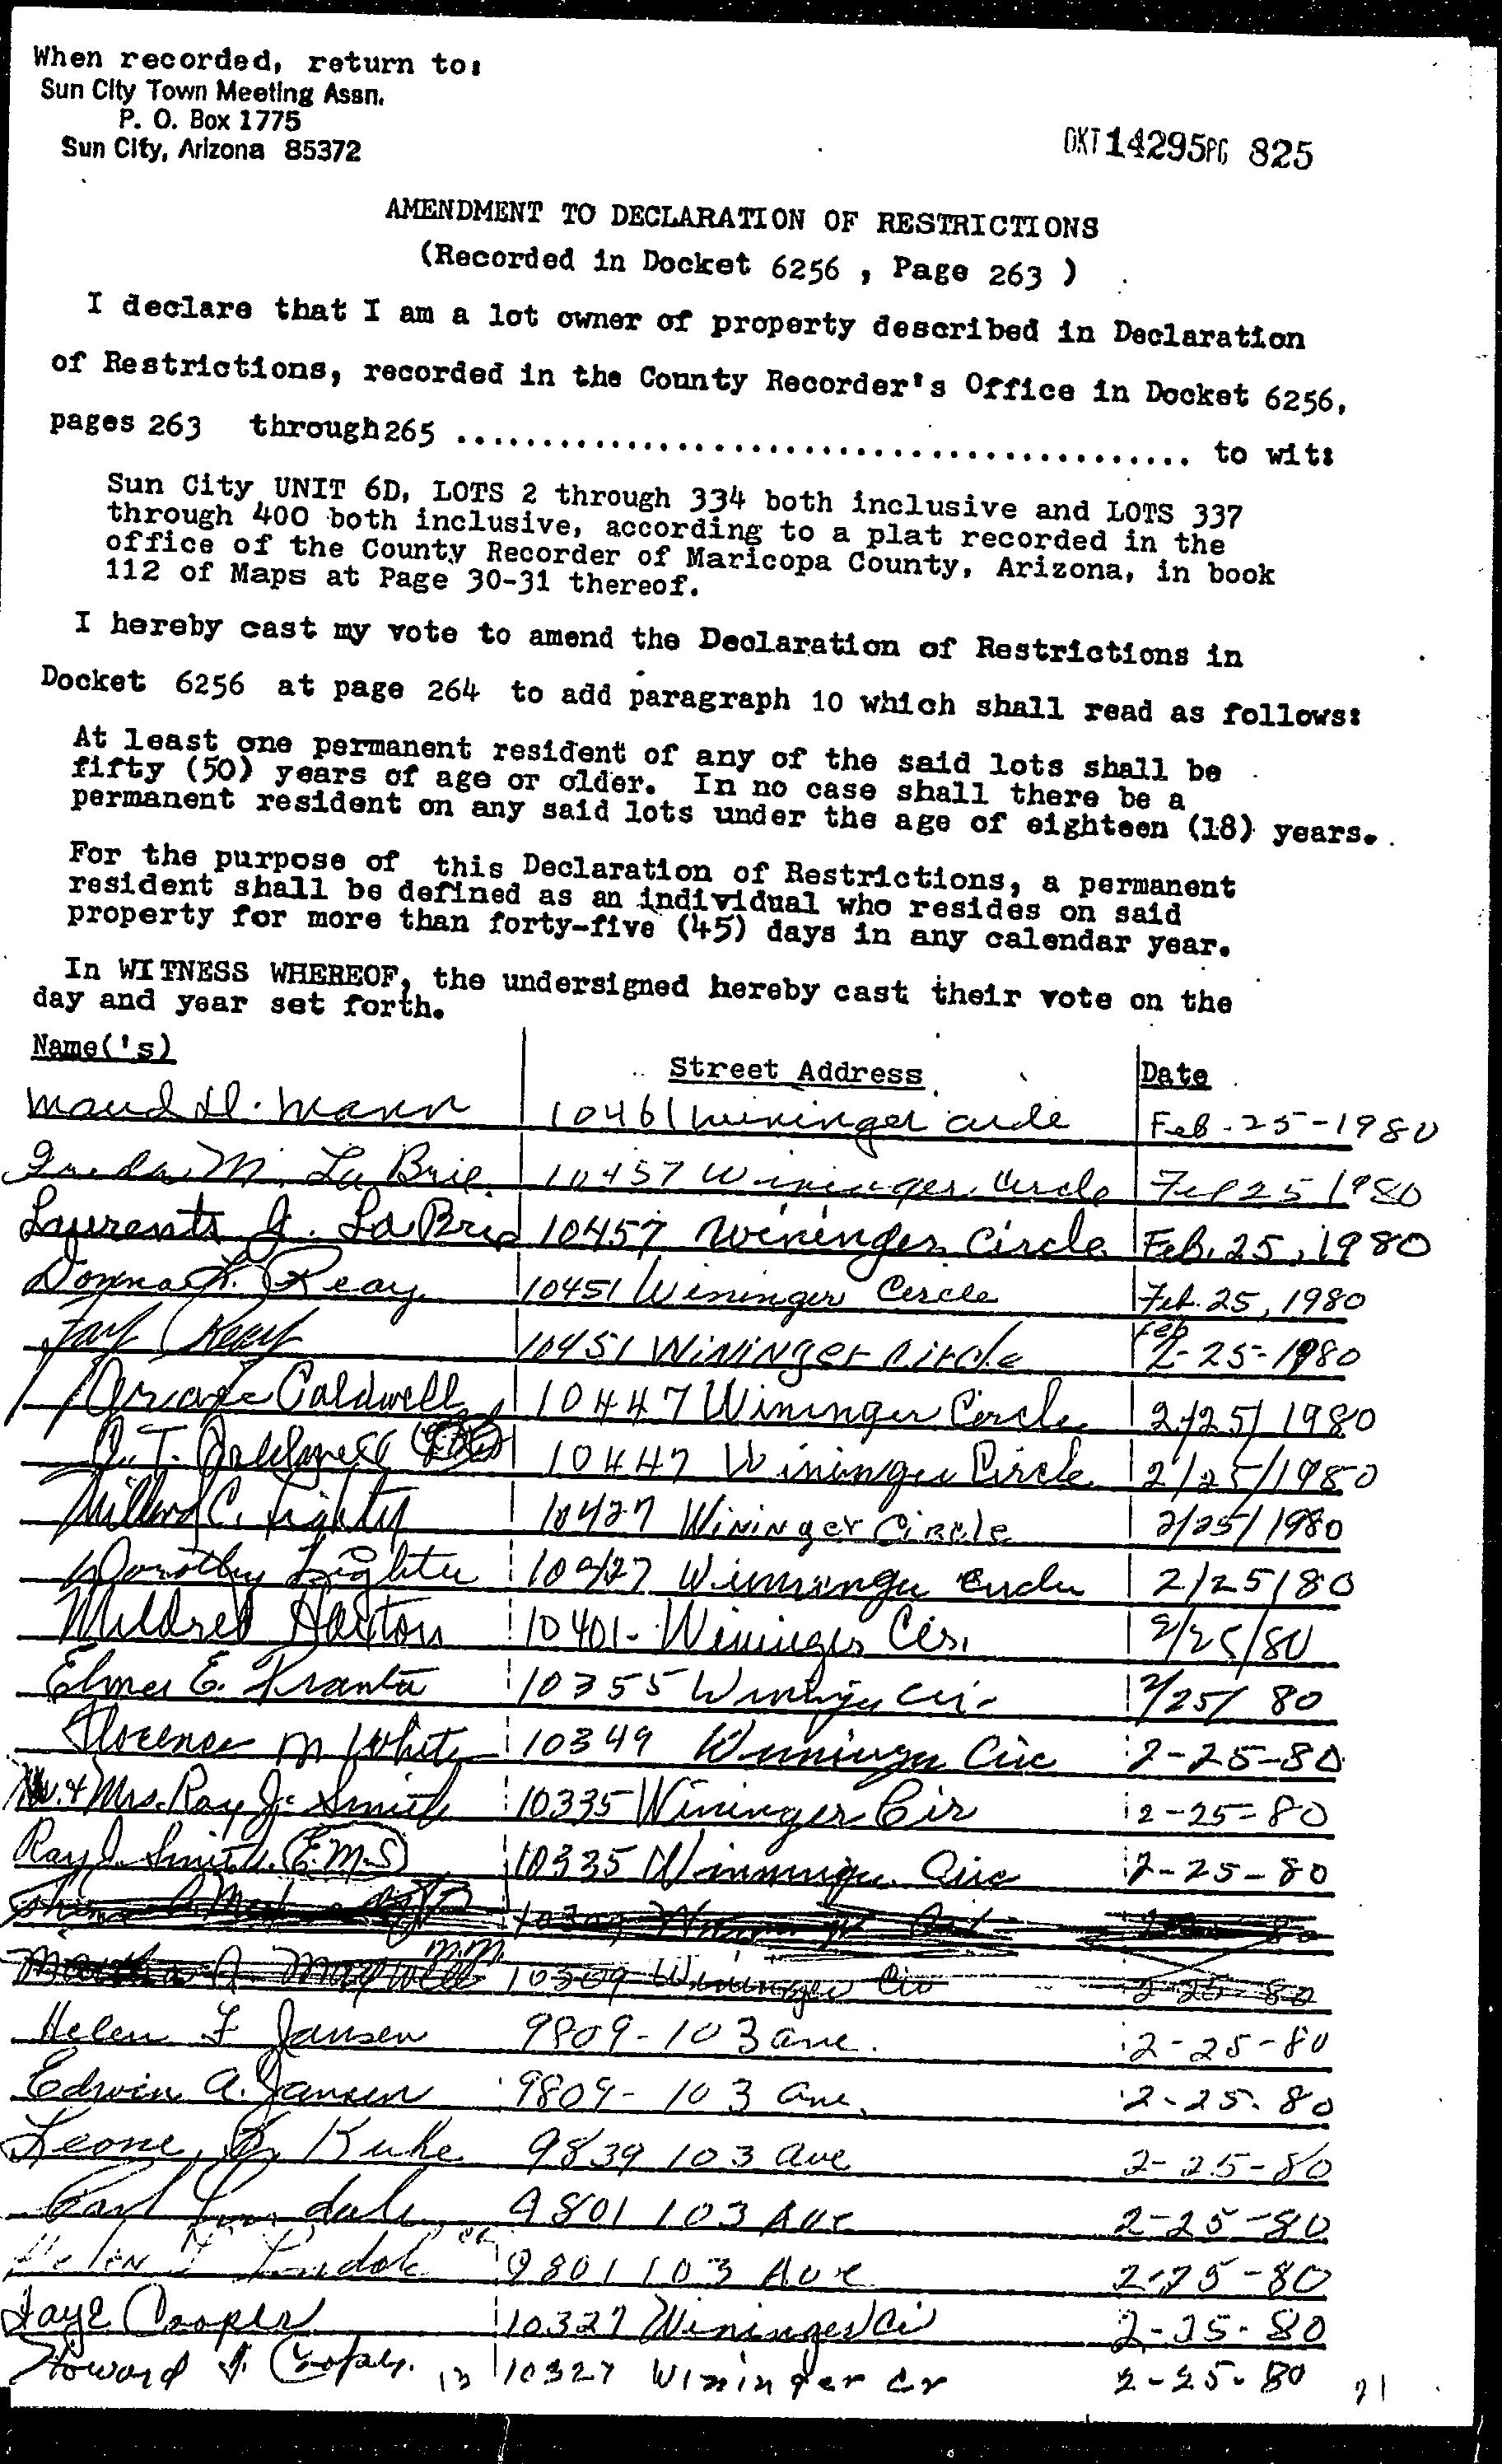 When recorded, return to:
Sun City Town Meeting Assn.
P. O. Box 1775
Sun City, Arizona 85372
DKT 14295 PG 825
AMENDMENT TO DECLARATION OF RESTRICTIONS
(Recorded in Docket 6256 , Page 263 )
I declare that I am a lot owner of property described in Declaration
of Restrictions, recorded in the County Recorder's Office in Docket 6256,
pages 263 through 265 ............................................... to wit:
Sun City UNIT 6D, LOTS 2 through 334 both inclusive and LOTS 337
through 400 both inclusive, according to a plat recorded in the
office of the County Recorder of Maricopa County, Arizona, in book
112 of Maps at Page 30-31 thereof.
I hereby cast my vote to amend the Declaration of Restrictions in
Docket 6256 at page 264 to add paragraph 10 which shall read as follows:
At least one permanent resident of any of the said lots shall be
fifty (50) years of age or older. In no case shall there be a
permanent resident on any said lots under the age of eighteen (18) years.
For the purpose of this Declaration of Restrictions, a permanent
resident shall be defined as an individual who resides on said
property for more than forty-five (45) days in any calendar year.
In WITNESS WHEREOF, the undersigned hereby cast their vote on the
day and year set forth.
Name('s) Street Address Date
Maud H. Mann 10461 Wininger Circle Feb. 25-1980
M. La Brie 10457 Wininger Circle Feb 25 1980
J. La Brie 10457 Wininger Circle Feb. 25, 1980
Donna L. Reay 10451 Wininger Circle Feb. 25, 1980
Reay 10451 Wininger Circle 2-25-1980
Caldwell 10447 Wininger Circle 2/25/1980
10447 Wininger Circle 2/25/1980
C. Lighty 10427 Wininger Circle 2/25/1980
Dorothy Lighty 10427 Wininger Circle 2/25/80
Mildred 10401- Wininger Cir. 2/25/80
Elmer E. 10355 Wininger Cir. 2/25/80
Florence M White 10349 Wininger Circ 2-25-80
Mr. & Mrs. Ray J. Smith 10335 Wininger Cir 2-25-80
Ray J. Smith (E.M.S) 10335 Wininger Circ 2-25-80
A. Maxwell M.M. 10309 Wininger Cir 2-25-80
Helen F Jansen 9809-103 ave. 2-25-80
Edwin A. Jansen 9809-103 Ave. 2-25-80
Leone 9839 103 ave 2-25-80
9801 103 Ave 2-25-80
Helen 9801 103 Ave 2-25-80
Faye Cooper 10327 Wininger Ci 2-25-80
Howard J. Cooper 13 10327 Wininger Cr 2-25-80 21